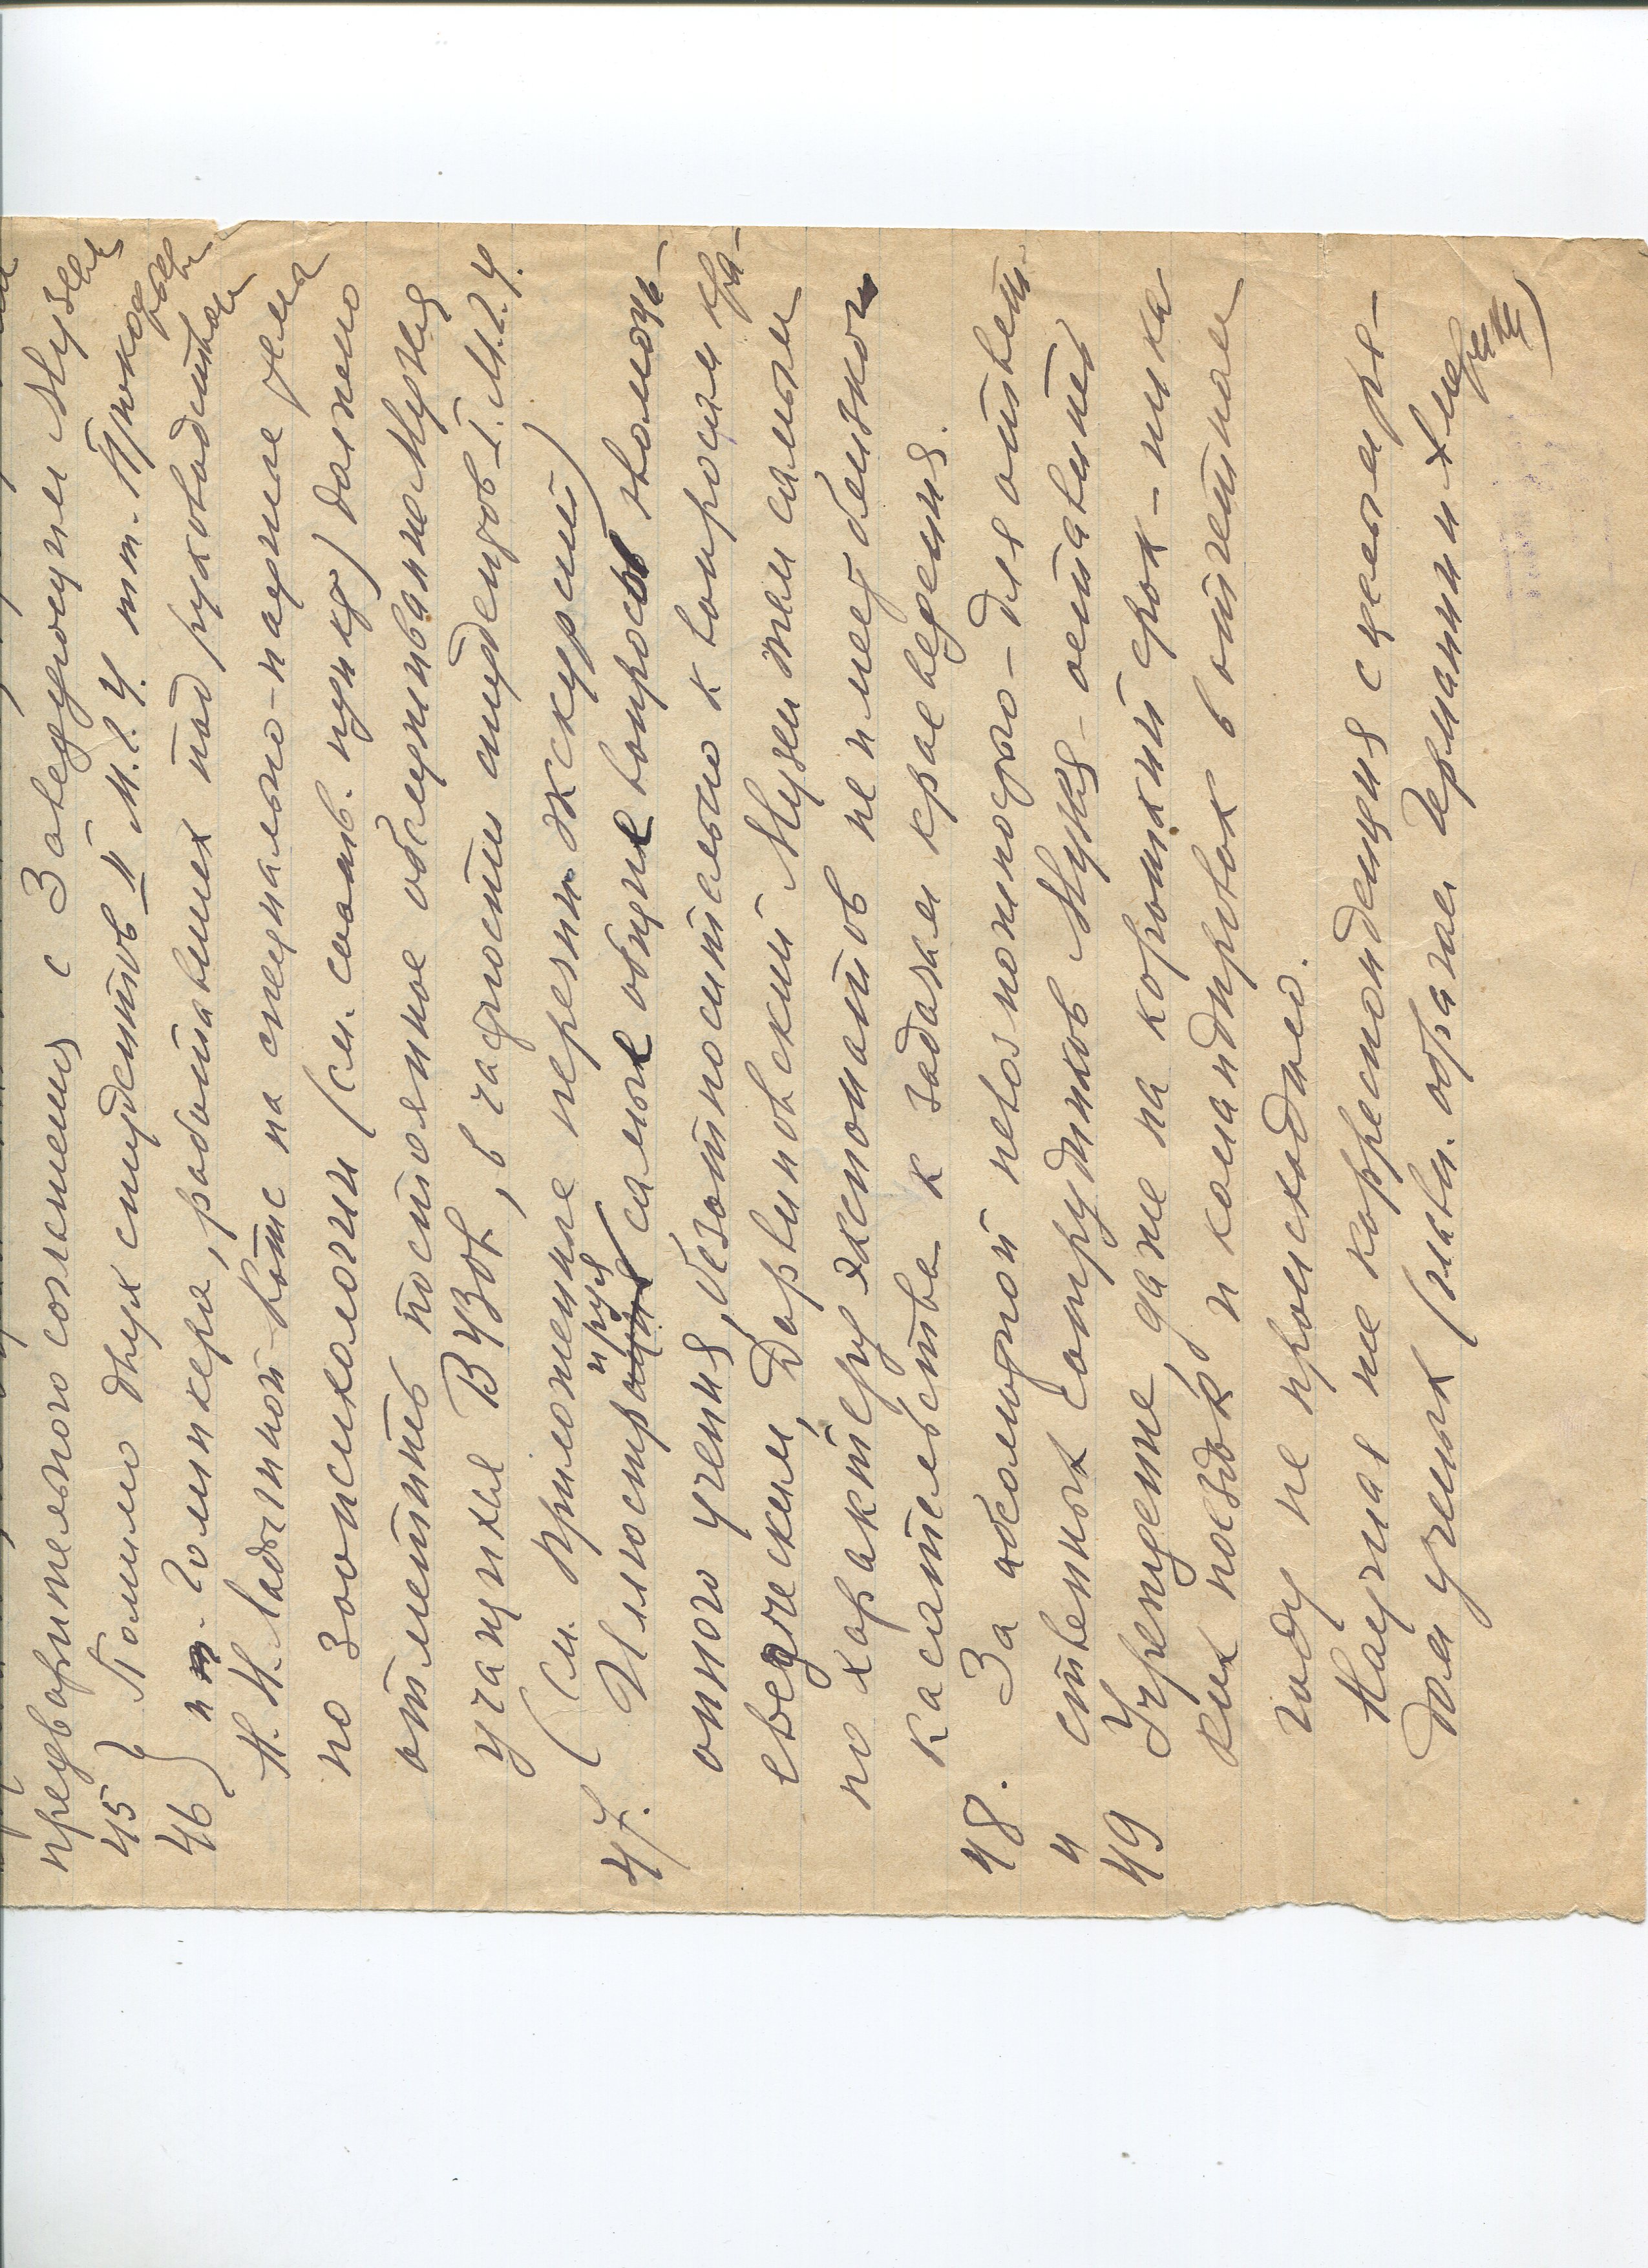 предварительного соглашения с Заведующим Музеем
45} Помимо двух студентов II М.Г.У. т.т. Прокофьева
46} и т. Гоммикера, работавших под руководством
Н.Н. Ладыгиной-Котс на специально-научные темы
по зоопсихологии (см. соотв. пункт) должно
отметить постоянное обслуживание Музея
учащихся ВУЗов, в частности студентов I. М.Г.У.
(см. приложение перечня экскурсий)
47. Иллюстрируя самые общие вопросы эволюци-
онного учения, безотносительно к вопросам кра-
еведческим, Дарвиновский Музей тем самым
по характеру экспонатов не имеет близкого
касательства к задачам краеведения.
48. За абсолютной невозможностью для ответ-
и ственных сотрудников Музея оставить
49 Учреждение, даже на короткий срок - ника-
ких поездок и командировок в отчетном
году не происходило.
Научная же корреспонденция с целым ря-
дом ученых (главн. образом Германии и Америки)